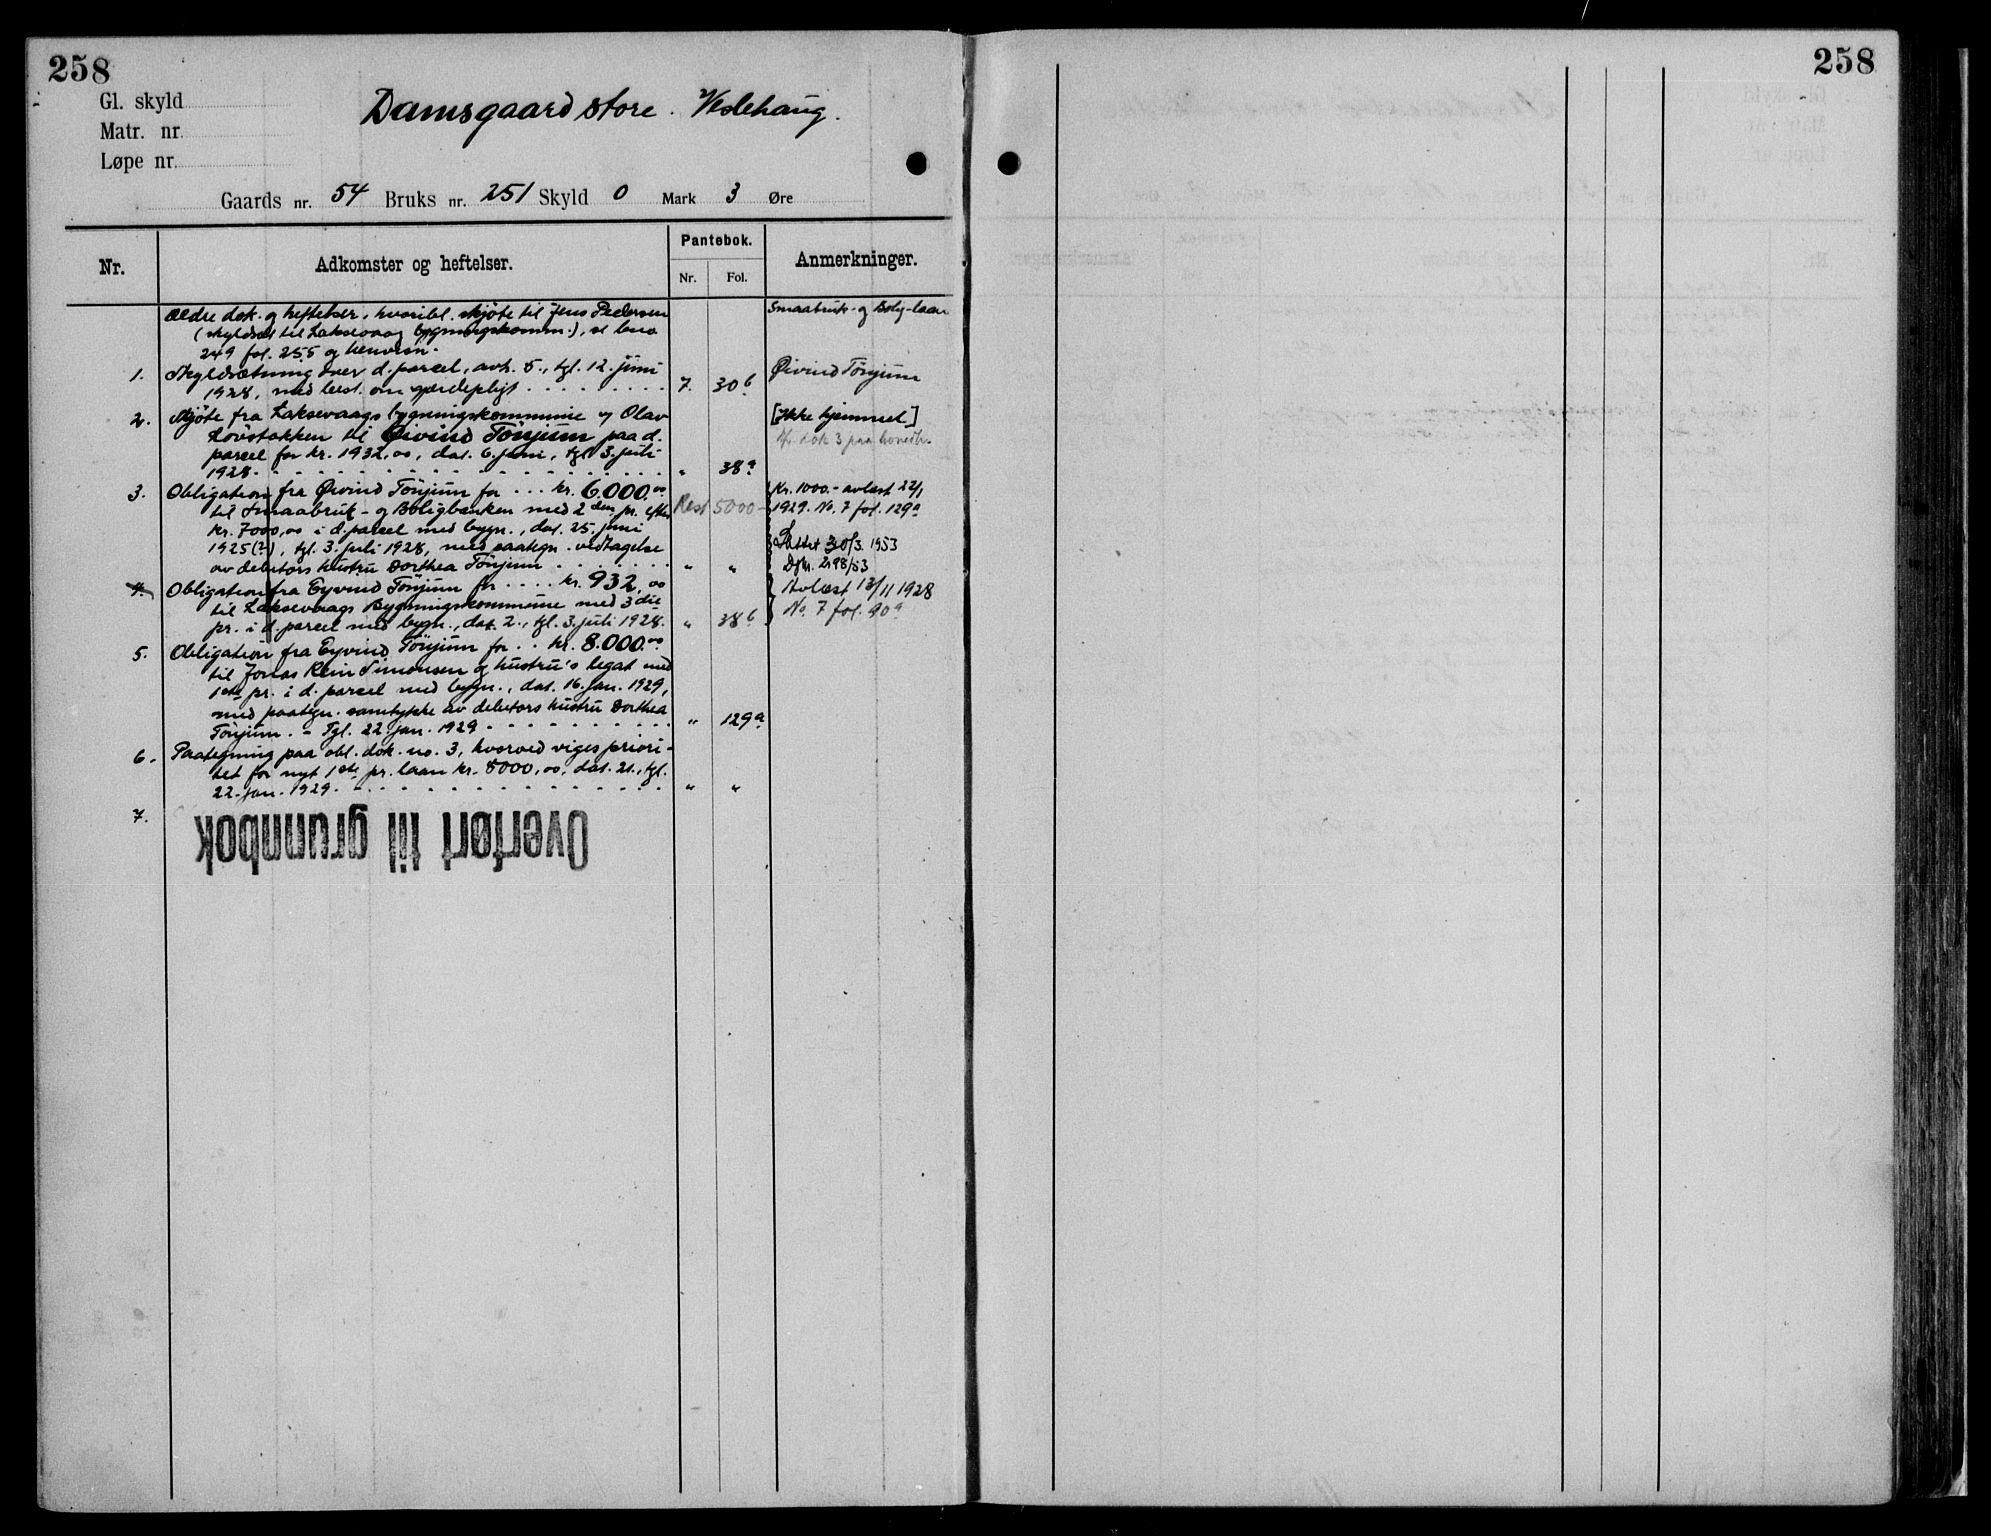 258
258
Gl. skyld
Matr. nr.
Løpe nr.
Damsgaard store. Veslehaug.
Gaards nr. 54 Bruks nr. 251 Skyld 0 Mark 3 Øre
Nr.
Adkomster og heftelser.
Pantebok.
Nr.
Fol.
Anmerkninger.
Ældre dok. og heftelser, hvoribl. skjøte til Jens Pedersen
(skyldsat til Laksevaag bygningskomm.), se bno
249 fol. 255 og henvisn.
Smaabruk- og Bolig-laan
1. Skyldsætning over d. parcel, avh. 5., tgl. 12. juni
1928, med best. om gjerdepligt . . . . . . . . . 7. 30 b
Øivind Tönjum
2. Skjöte fra Laksevaags bygningskommune og Olav
Lövstakken til Øivind Tönjum paa d.
parcel for kr. 1932,00, dat. 6. juni, tgl. 3. juli
1928. - - - - - - - - - - - - - " 38 a
[Ikke hjemmel]
dok 3 paa hovedbr.
3. Obligation fra Øivind Tönjum for ... kr. 6.000.00
til Smaabruk- og Boligbanken med 2den pr. efter
kr. 7000,00 i d. parcel med bygn., dat. 25. juni
1925(?), tgl. 3. juli 1928, med paategn. vedtagelse
av debitors hustru Dorthea Tönjum . . . . . . . " "
Rest 5000-
Kr. 1000.- avlæst 22/1
1929. No. 7 fol. 129a
Slettet 30/3. 1953
Dgbnr. 2198/53
4. Obligation fra Eyvind Tönjum for .... kr. 932,00
til Laksevaags Bygningskommune med 3die
pr. i d. parcel med bygn., dat. 2., tgl. 3. juli 1928. " 38 b
Avlæst 13/11 1928
No. 7 fol. 90a
5. Obligation fra Eyvind Tönjum for .. kr. 8.000.00
til Jonas Rein Simonsen og hustru's legat med
1ste pr. i d. parcel med bygn., dat. 16. jan. 1929,
med paategn. samtykke av debitors hustru Dorthea
Tönjum. - Tgl. 22. jan. 1929 - - - - - - - - - " 129 a
6. Paategning paa obl. dok. no. 3, hvorved viges priori-
tet for nyt 1ste pr. laan kr. 8000,00, dat. 21., tgl.
22. jan. 1929. - - - - - - - - - - - - " "
7.
Overført til grunnbok